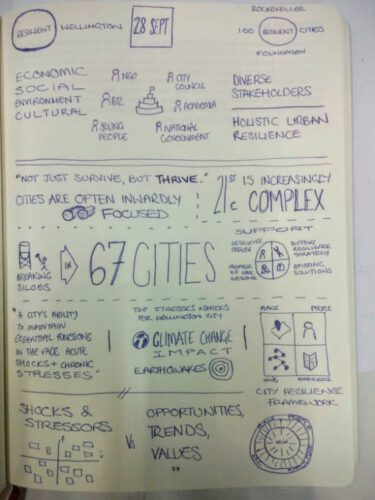 RESILIENT WELLINGTON
28 SEPT
ROCKEFELLER
100 RESILIENT CITIES
FOUNDATION
ECONOMIC
SOCIAL
ENVIRONMENT
CULTURAL
NGO
CITY
COUNCIL
BIZ
ACADEMIA
YOUNG
PEOPLE
NATIONAL
GOVERNMENT
DIVERSE
STAKEHOLDERS
HOLISTIC URBAN
RESILIENCE
"NOT JUST SURVIVE, BUT THRIVE."
CITIES ARE OFTEN INWARDLY
FOCUSED
21st C IS INCREASINGLY
COMPLEX
BREAKING
SILOES
IN
67 CITIES
SUPPORT
RESILIENCE
OFFICER
SUPPORT
RESILIENCE
STRATEGY
MEMBER
NETWORK
EXISTING
SOLUTIONS
"A CITY'S ABILITY
TO MAINTAIN
ESSENTIAL FUNCTIONS
IN THE FACE ACUTE
SHOCKS + CHRONIC
STRESSES"
TOP STRESSES + SHOCKS
FOR WELLINGTON CITY
CLIMATE CHANGE
IMPACT
EARTHQUAKES
PLACE
PEOPLE
CITY RESILIENCE
FRAMEWORK
SHOCKS &
STRESSORS
VS
OPPORTUNITIES,
TRENDS,
VALUES